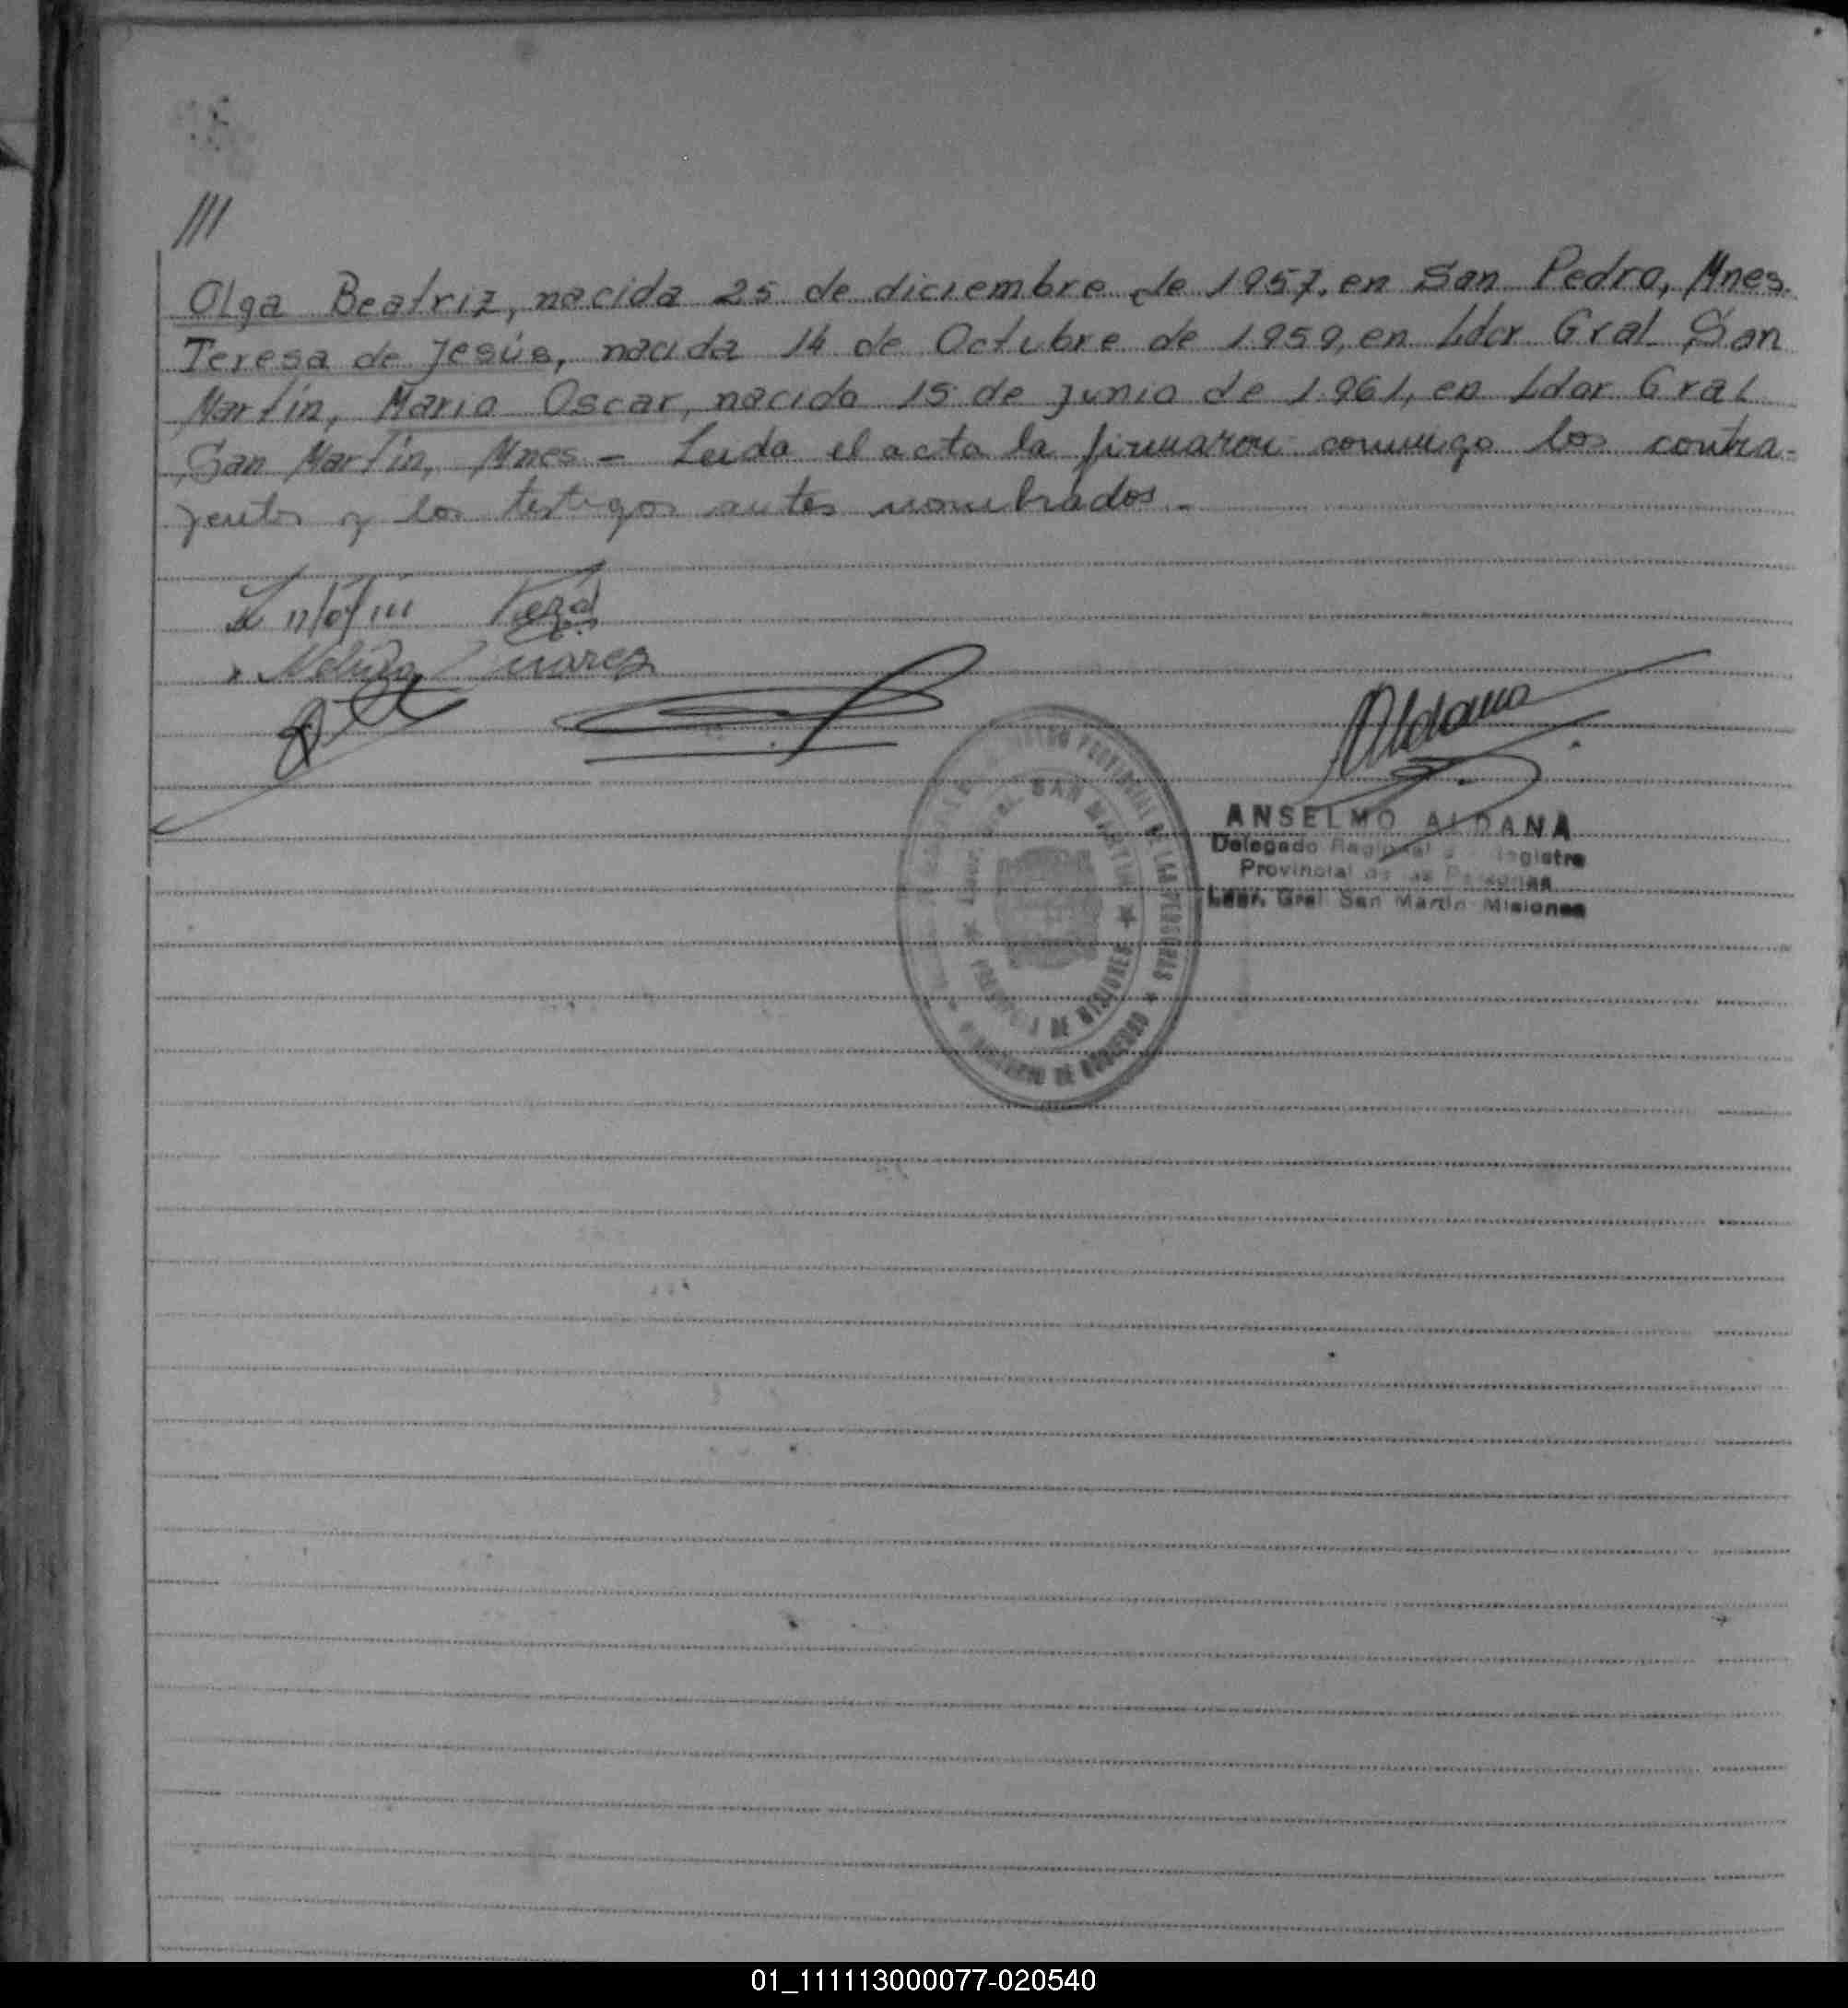 ///
Olga Beatriz, nacida 25 de diciembre de 1957, en San Pedro, Mnes.
Teresa de Jesús, nacida 14 de Octubre de 1.959, en Ldor Gral San
Martín, Mario Oscar, nacido 15 de junio de 1.961, en Ldor Gral
San Martín, Mnes - Leida el acta la firmaron conmigo los contra-
yentes y los testigos antes nombrados -
Vera
Suarez
Aldana
SAN MARTIN
DE LAS PERSONAS
DE MISIONES
DE GOBIERNO
ANSELMO ALDANA
Delegado Regional Registro
Provincial de las Personas
Ldor. Gral San Martín Misiones
01_111113000077-020540